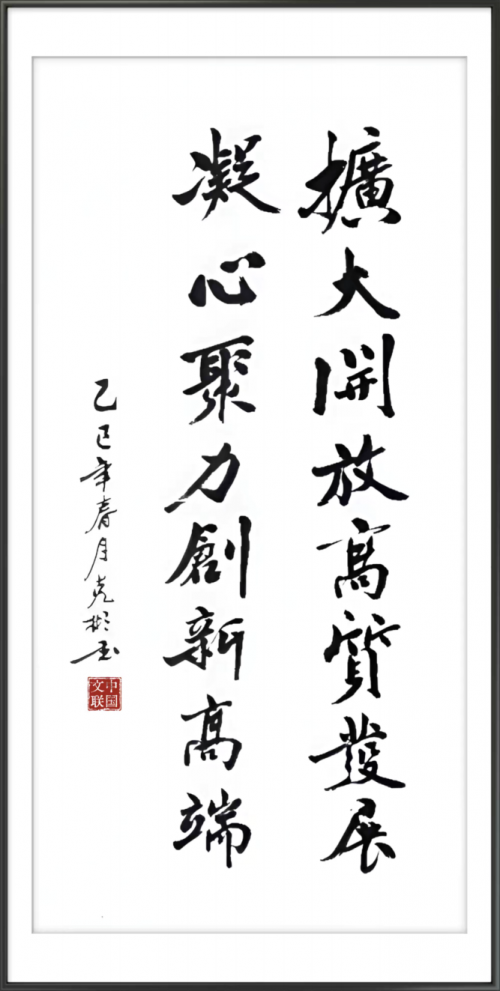 擴大開放高質發展
凝心聚力創新高端
乙巳年春月克彬书
中国
文联